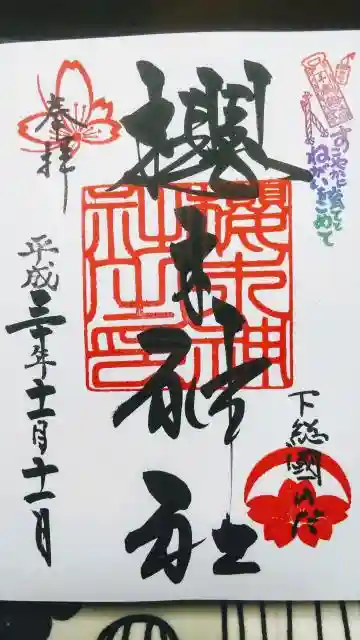 すこやかに育てと
ねがいをこめて
下総國
櫻木神社
櫻木神
社之印
奉拝
平成三十年十一月十一日